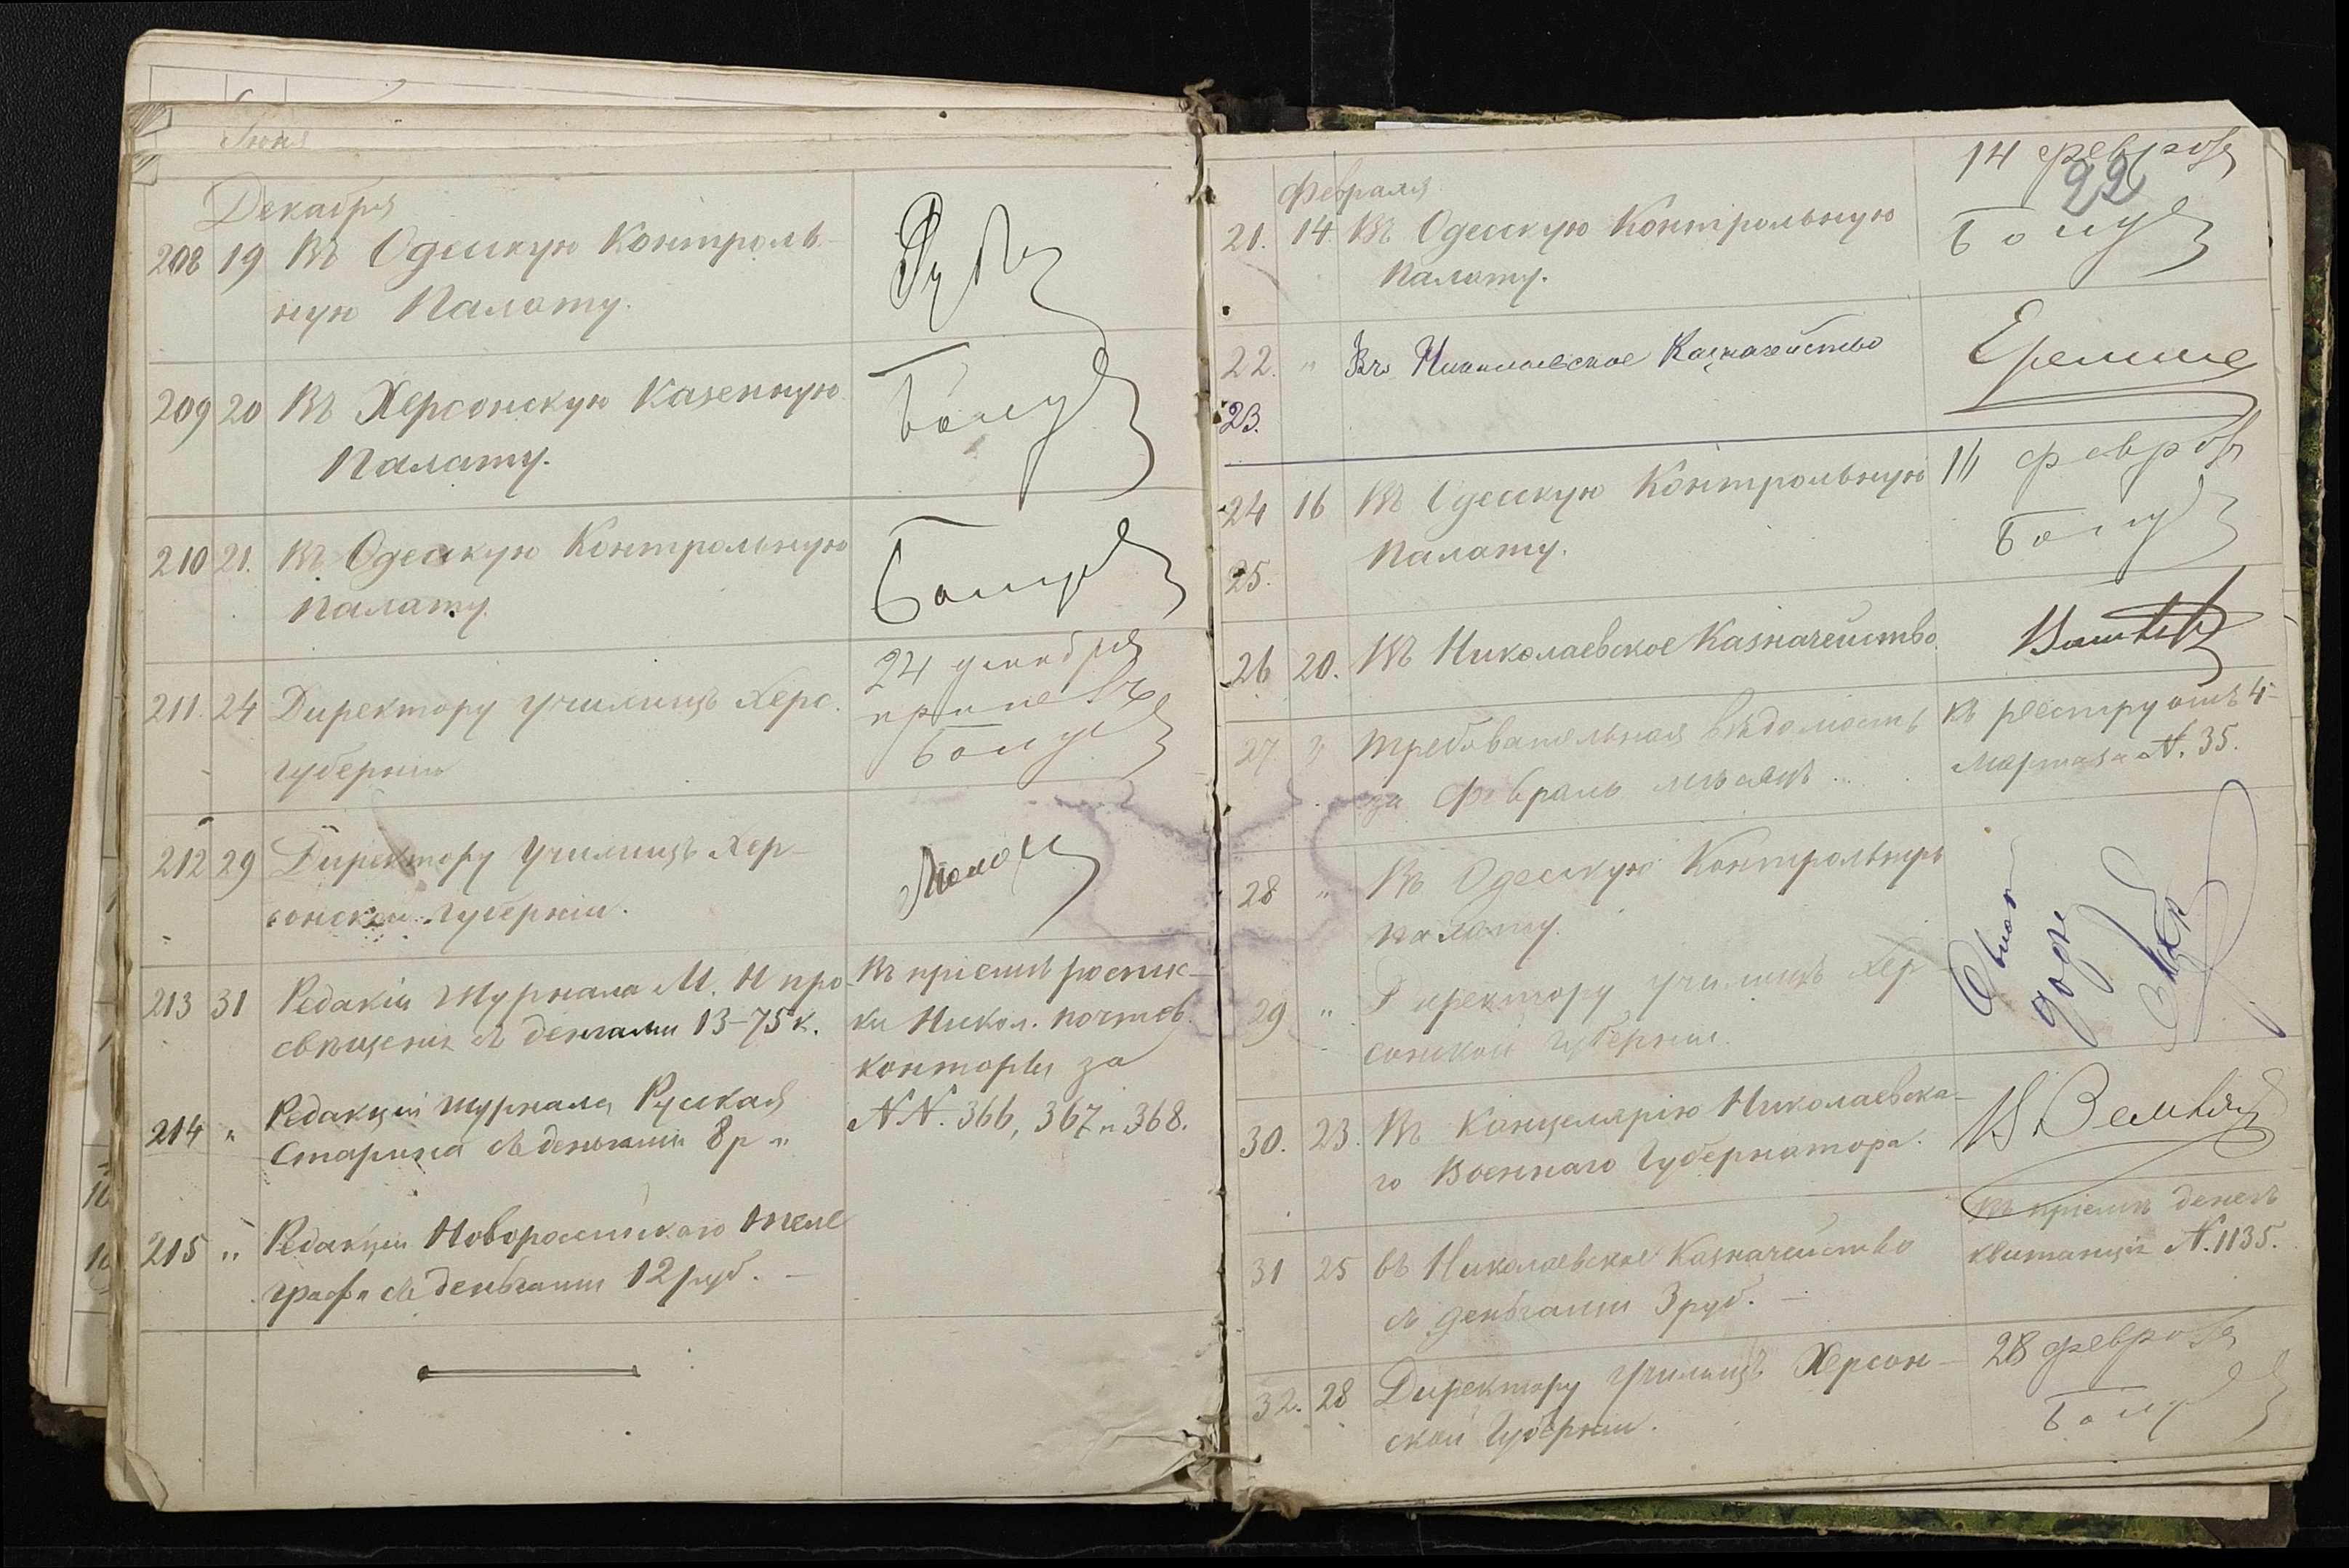 Іюня
Декабря
208 19 Въ Одесскую Контроль-
ную Палату.
209 20 Въ Херсонскую Казенную
Палату.
210 21. Въ Одесскую Контрольную
Палату.
211. 24 Директору училищъ Херс.
губерніи
24 декабря
212 29 Директору Училищъ Хер-
сонской Губерніи.
213 31 Редакціи Журнала М. Н про
свѣщенія съ деньгами 13-75 к.
Въ пріемѣ роспис-
ки Никол. почтов.
конторы за
N N. 366, 367 и 368.
214 „ Редакціи журнала Русская
Старина съ деньгами 8 р „
215 „ Редакціи Новороссійскаго теле
графа съ деньгами 12 руб. —
22
Февраля
21. 14. Въ Одесскую Контрольную
Палату.
14 февраля
22. „ Въ Николаевское Казначейство
23.
24 16 Въ Одесскую Контрольную
Палату.
16 февраля
25.
26 20. Въ Николаевское Казначейство.
27 „ Требовательная вѣдомость
за Февраль мѣсяцъ
къ реестру отъ 4-
марта за N. 35.
28 „ Въ Одесскую Контрольную
палату.
29 „ Директору училищъ Хер
сонской губерніи.
30. 23. Въ Канцелярію Николаевска-
го Военнаго Губернатора.
31 25 въ Николаевское Казначейство
съ деньгами 3 руб. —
въ пріемѣ денегъ
квитанція N. 1135.
32. 28 Директору Училищъ Херсон-
ской Губерніи.
28 февраля